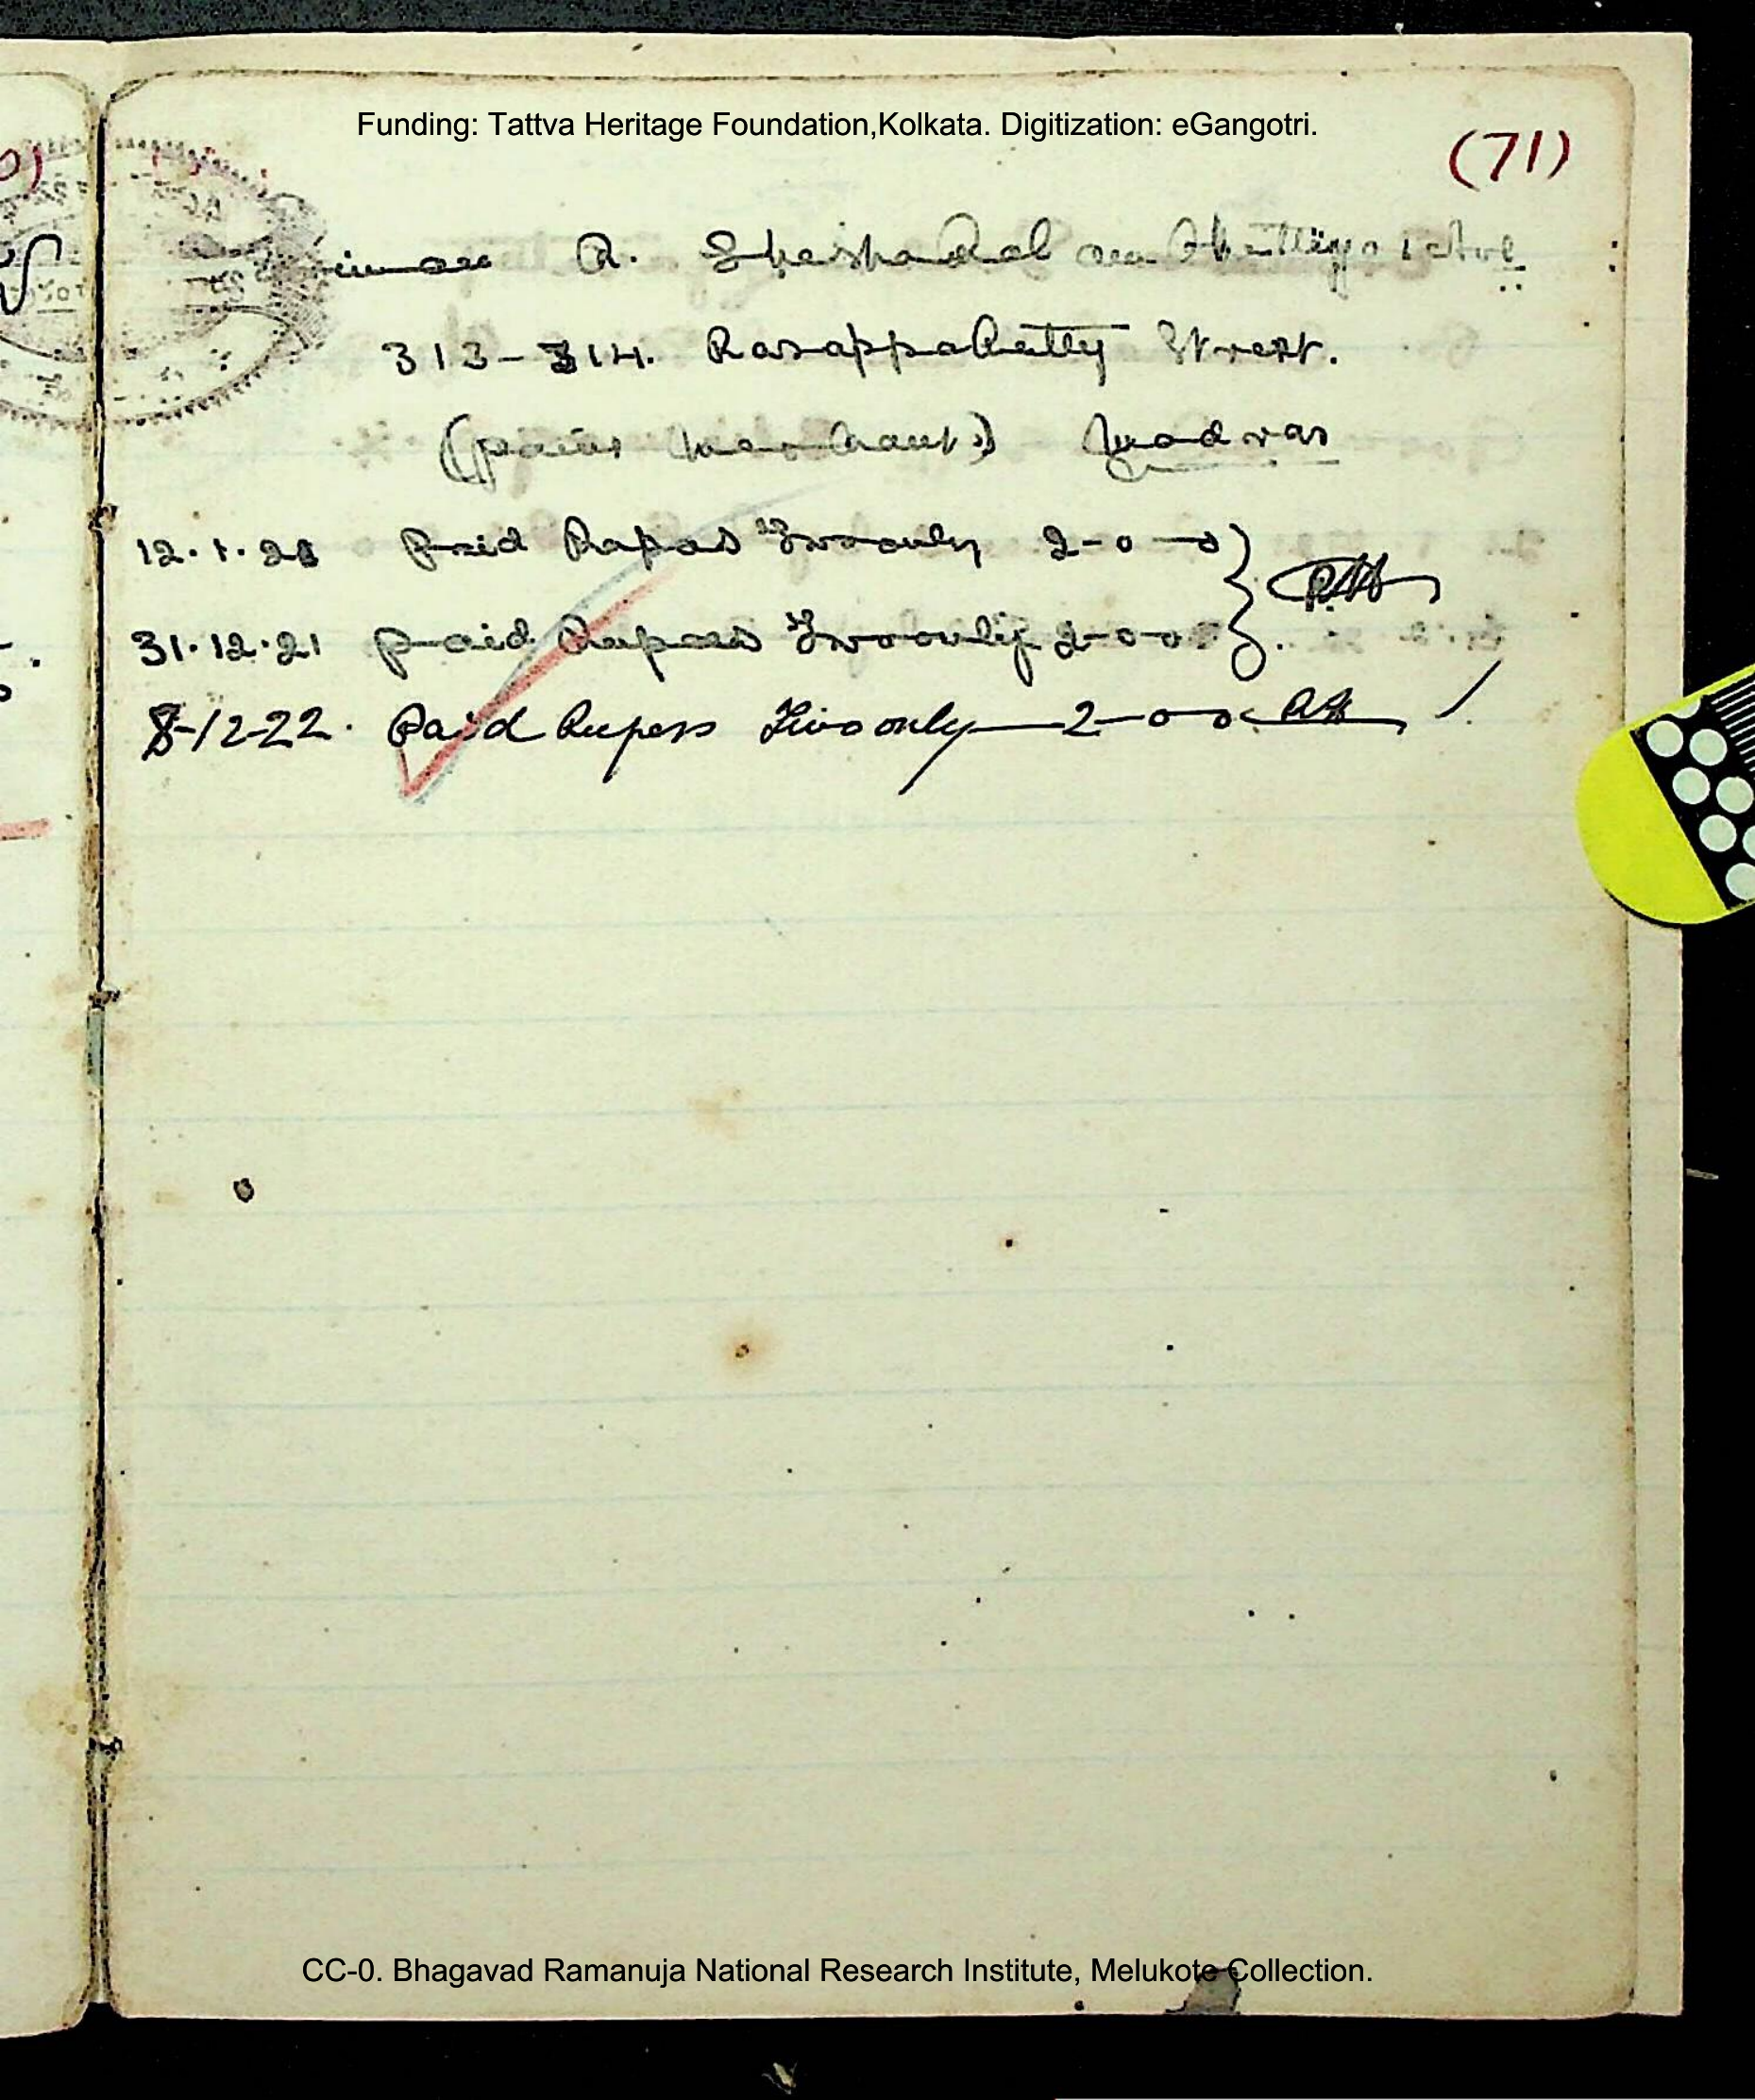 Funding: Tattva Heritage Foundation,Kolkata. Digitization: eGangotri.
(71)
R.
313-314. Rasappa Chetty Street.
Madras
12.1.21 Paid Rupees Two only 2-0-0
31.12.21 paid Rupees Two only 2-0-0
8-12-22. Paid Rupess Two only 2-0-0
CC-0. Bhagavad Ramanuja National Research Institute, Melukote Collection.